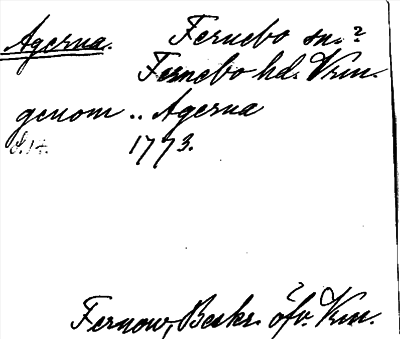 Agerna. Fernebo sn.?
Fernebo hd. Vrm.
genom .. Agerna
s. 14. 1773.
Fernow, Beskr. öfv. Vrm.